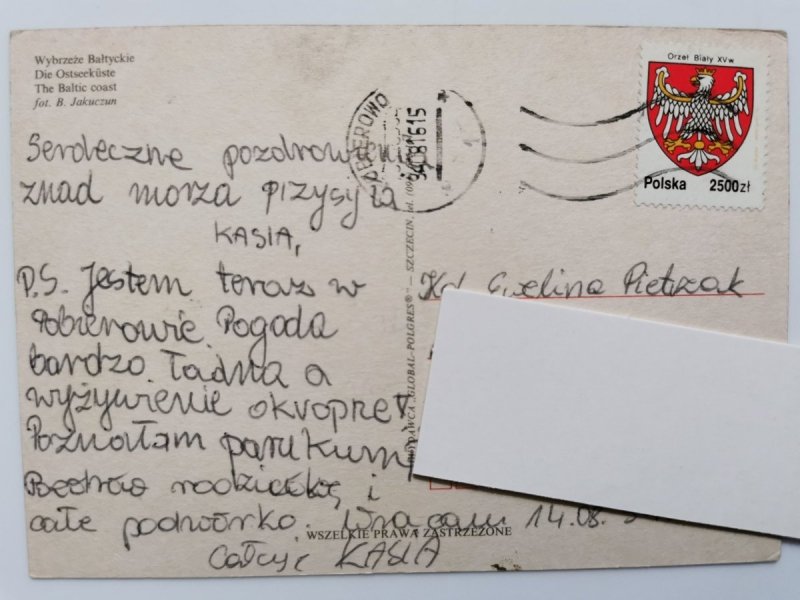 Wybrzeże Bałtyckie
Die Ostseeküste
The Baltic coast
fot. B. Jakuczun
Serdeczne pozdrowienia
znad morza przysyła
KASIA,
P.S. Jestem teraz w
Pobierowie. Pogoda
bardzo ładna a
wyżywienie okropne!
Poznałam parę kum
rodzinkę i
całe podwórko. Wracam 14.08.
Całuję KASIA
WSZELKIE PRAWA ZASTRZEŻONE
WYDAWCA „GLOBAL-POLGRES"® — SZCZECIN, tel.
Orzeł Biały XVw
Polska 2500zł
Kd. Ewelina Pietrzak